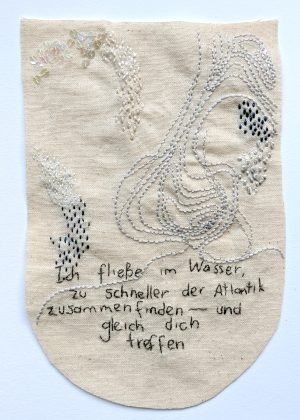 Ich fließe im Wasser,
zu schneller der Atlantik
zusammenfinden — und
gleich dich
treffen